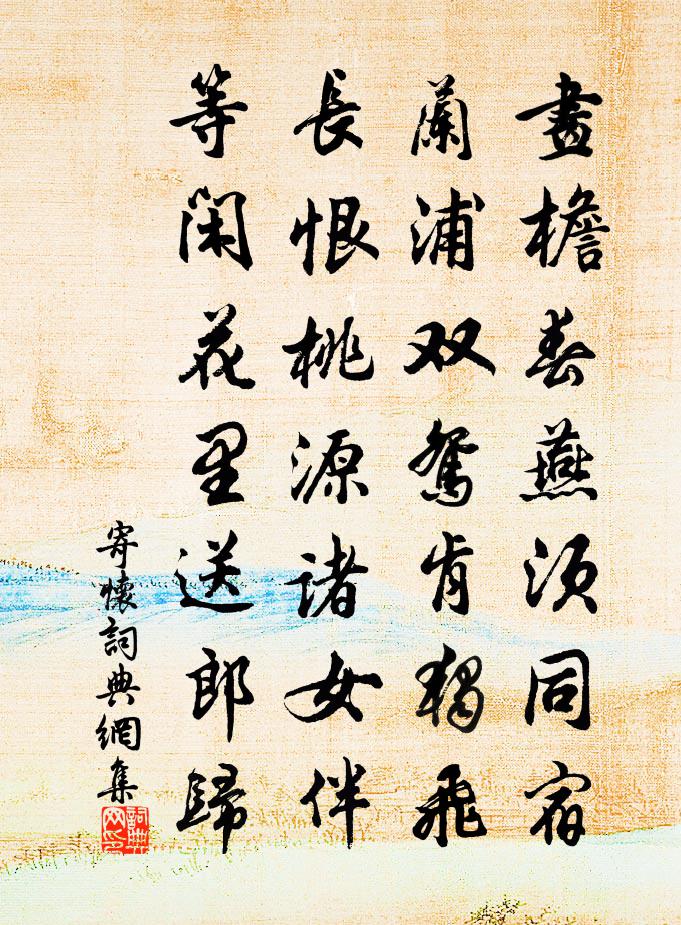 畫檐春燕須同宿
蘭浦双鴛肯獨飛
長恨桃源諸女伴
等閑花里送郎歸
寄懷詞典網集
詞典网印